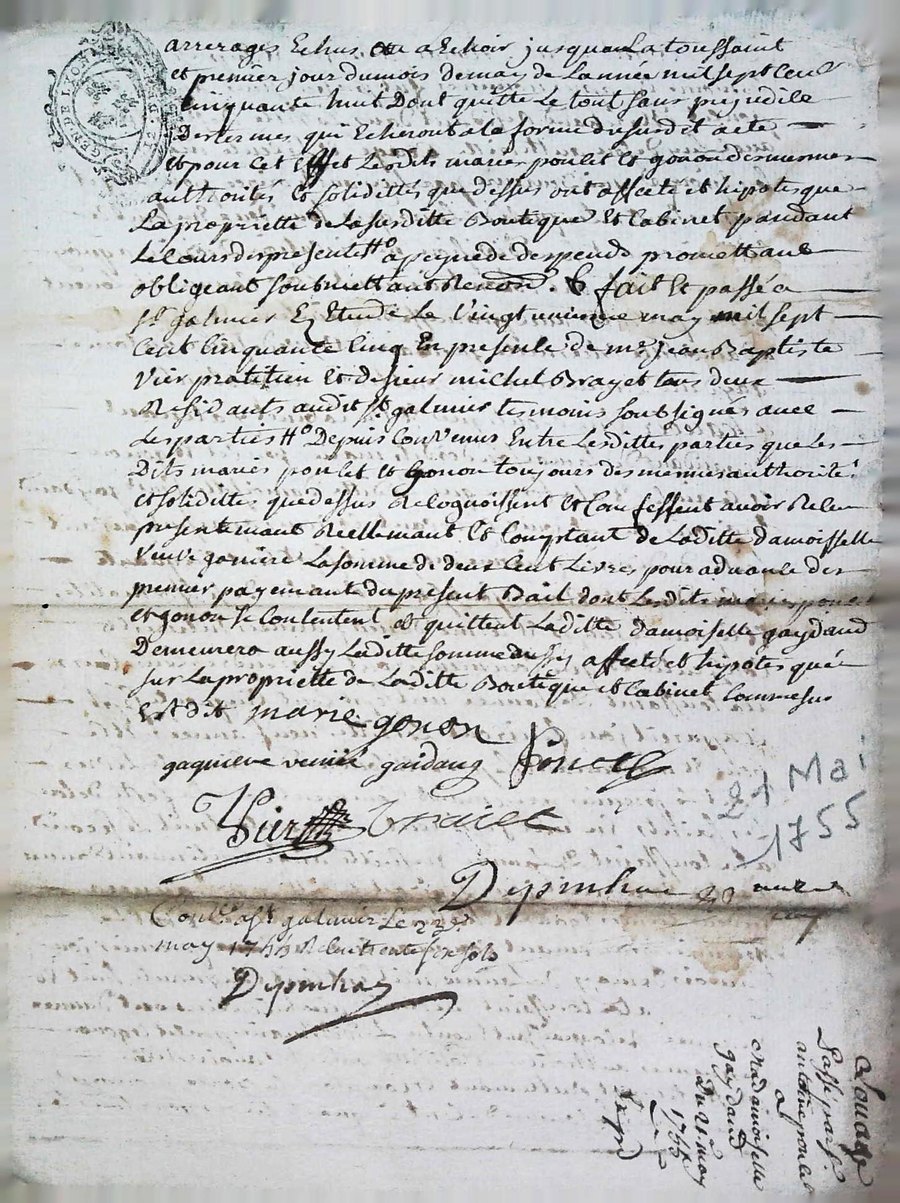 arrerages Echus ou a Echoir jusqua La toussaint
et premier jour dumois demay de Lannée mil sept Cent
Cinquante huit Dont quitte Le tout sans prejudice
Destermes qui Echeront ala forme dususdit acte
Et pour Cet Effet Lesdits mariés poulet et gonon desmemes
authorités et solidittés que dessus ont affecté et hipotesque
La propriette de Lasusditte Boutique Et Cabinet pandant
Le Cours despresente Ho apeyne de despends promettant
obligeant soubmettant Renon. & fait Et passé a
st galmier Ez Etude Le Vingt unieme may mil sept
Cent Cinquante Cinq En presence de me Jean Baptiste
Vier pratitien Et de sieur michel Brayet tous deux
Residants audit st galmier tesmoins soubsignés avec
Les parties Ho Depuis Convenus Entre Lesdittes parties que Les
Dits mariés poulet et Gonon toujours desmemes authorité
et solidittes que dessus Recognoissent et Confessent avoir Receu
presentemant Reellemant Et Comptant de Laditte damoisselle
veuve La somme de deux Cent Livres pour advance des
premier payemants du present Bail dont Lesdits maries poulet
et gonon se Contentent et quittent Laditte damoiselle gaydand
Demeurera aussy Laditte somme affecté et hipotesqué
sur La propriette de Laditte Boutique et Cabinet Comme sus
Est dit marie gonon
gagniere veuve gaidang Poncet
Vier Braiet
21 Mai
1755
Depinhac
Conlé a st galmier Le 22e
may 1755 Receu trente six sols
Depinhac
Louage
Passé par sr
antoine poulet
a
madamoiselle
gaydand
Du 21 may
1755